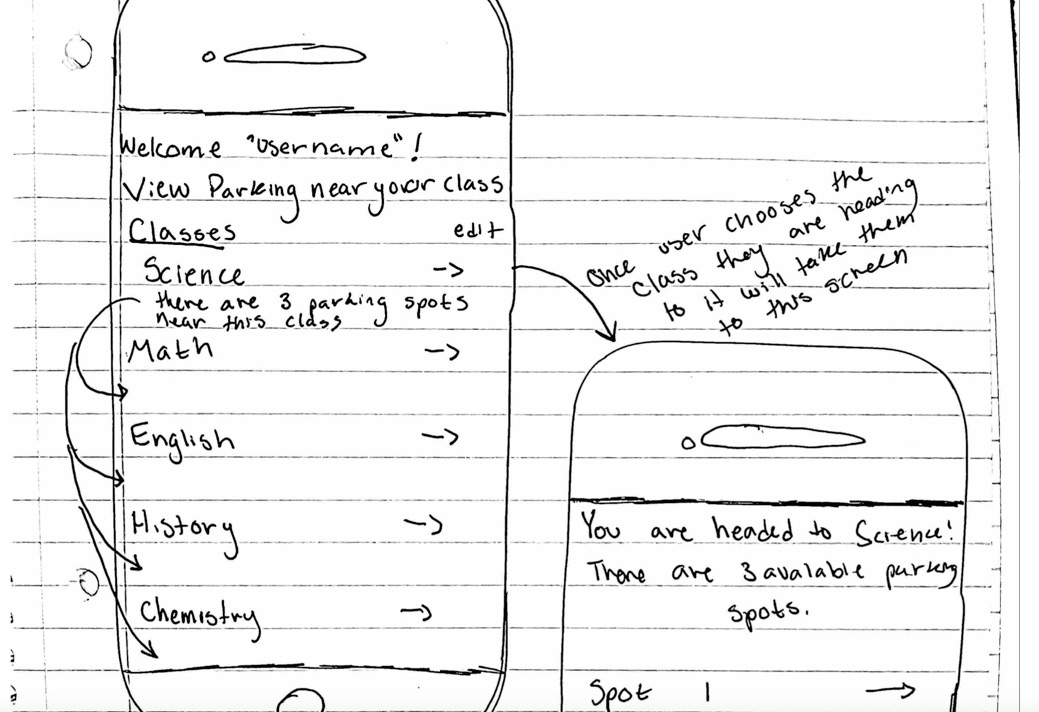 Welcome "username"!
View Parking near your class
Classes edit
Science ->
there are 3 parking spots
near this class
Math ->
English ->
History ->
Chemistry ->
once user chooses the
class they are heading
to it will take them
to this screen
You are headed to Science!
There are 3 avalable parking
spots.
Spot 1 ->